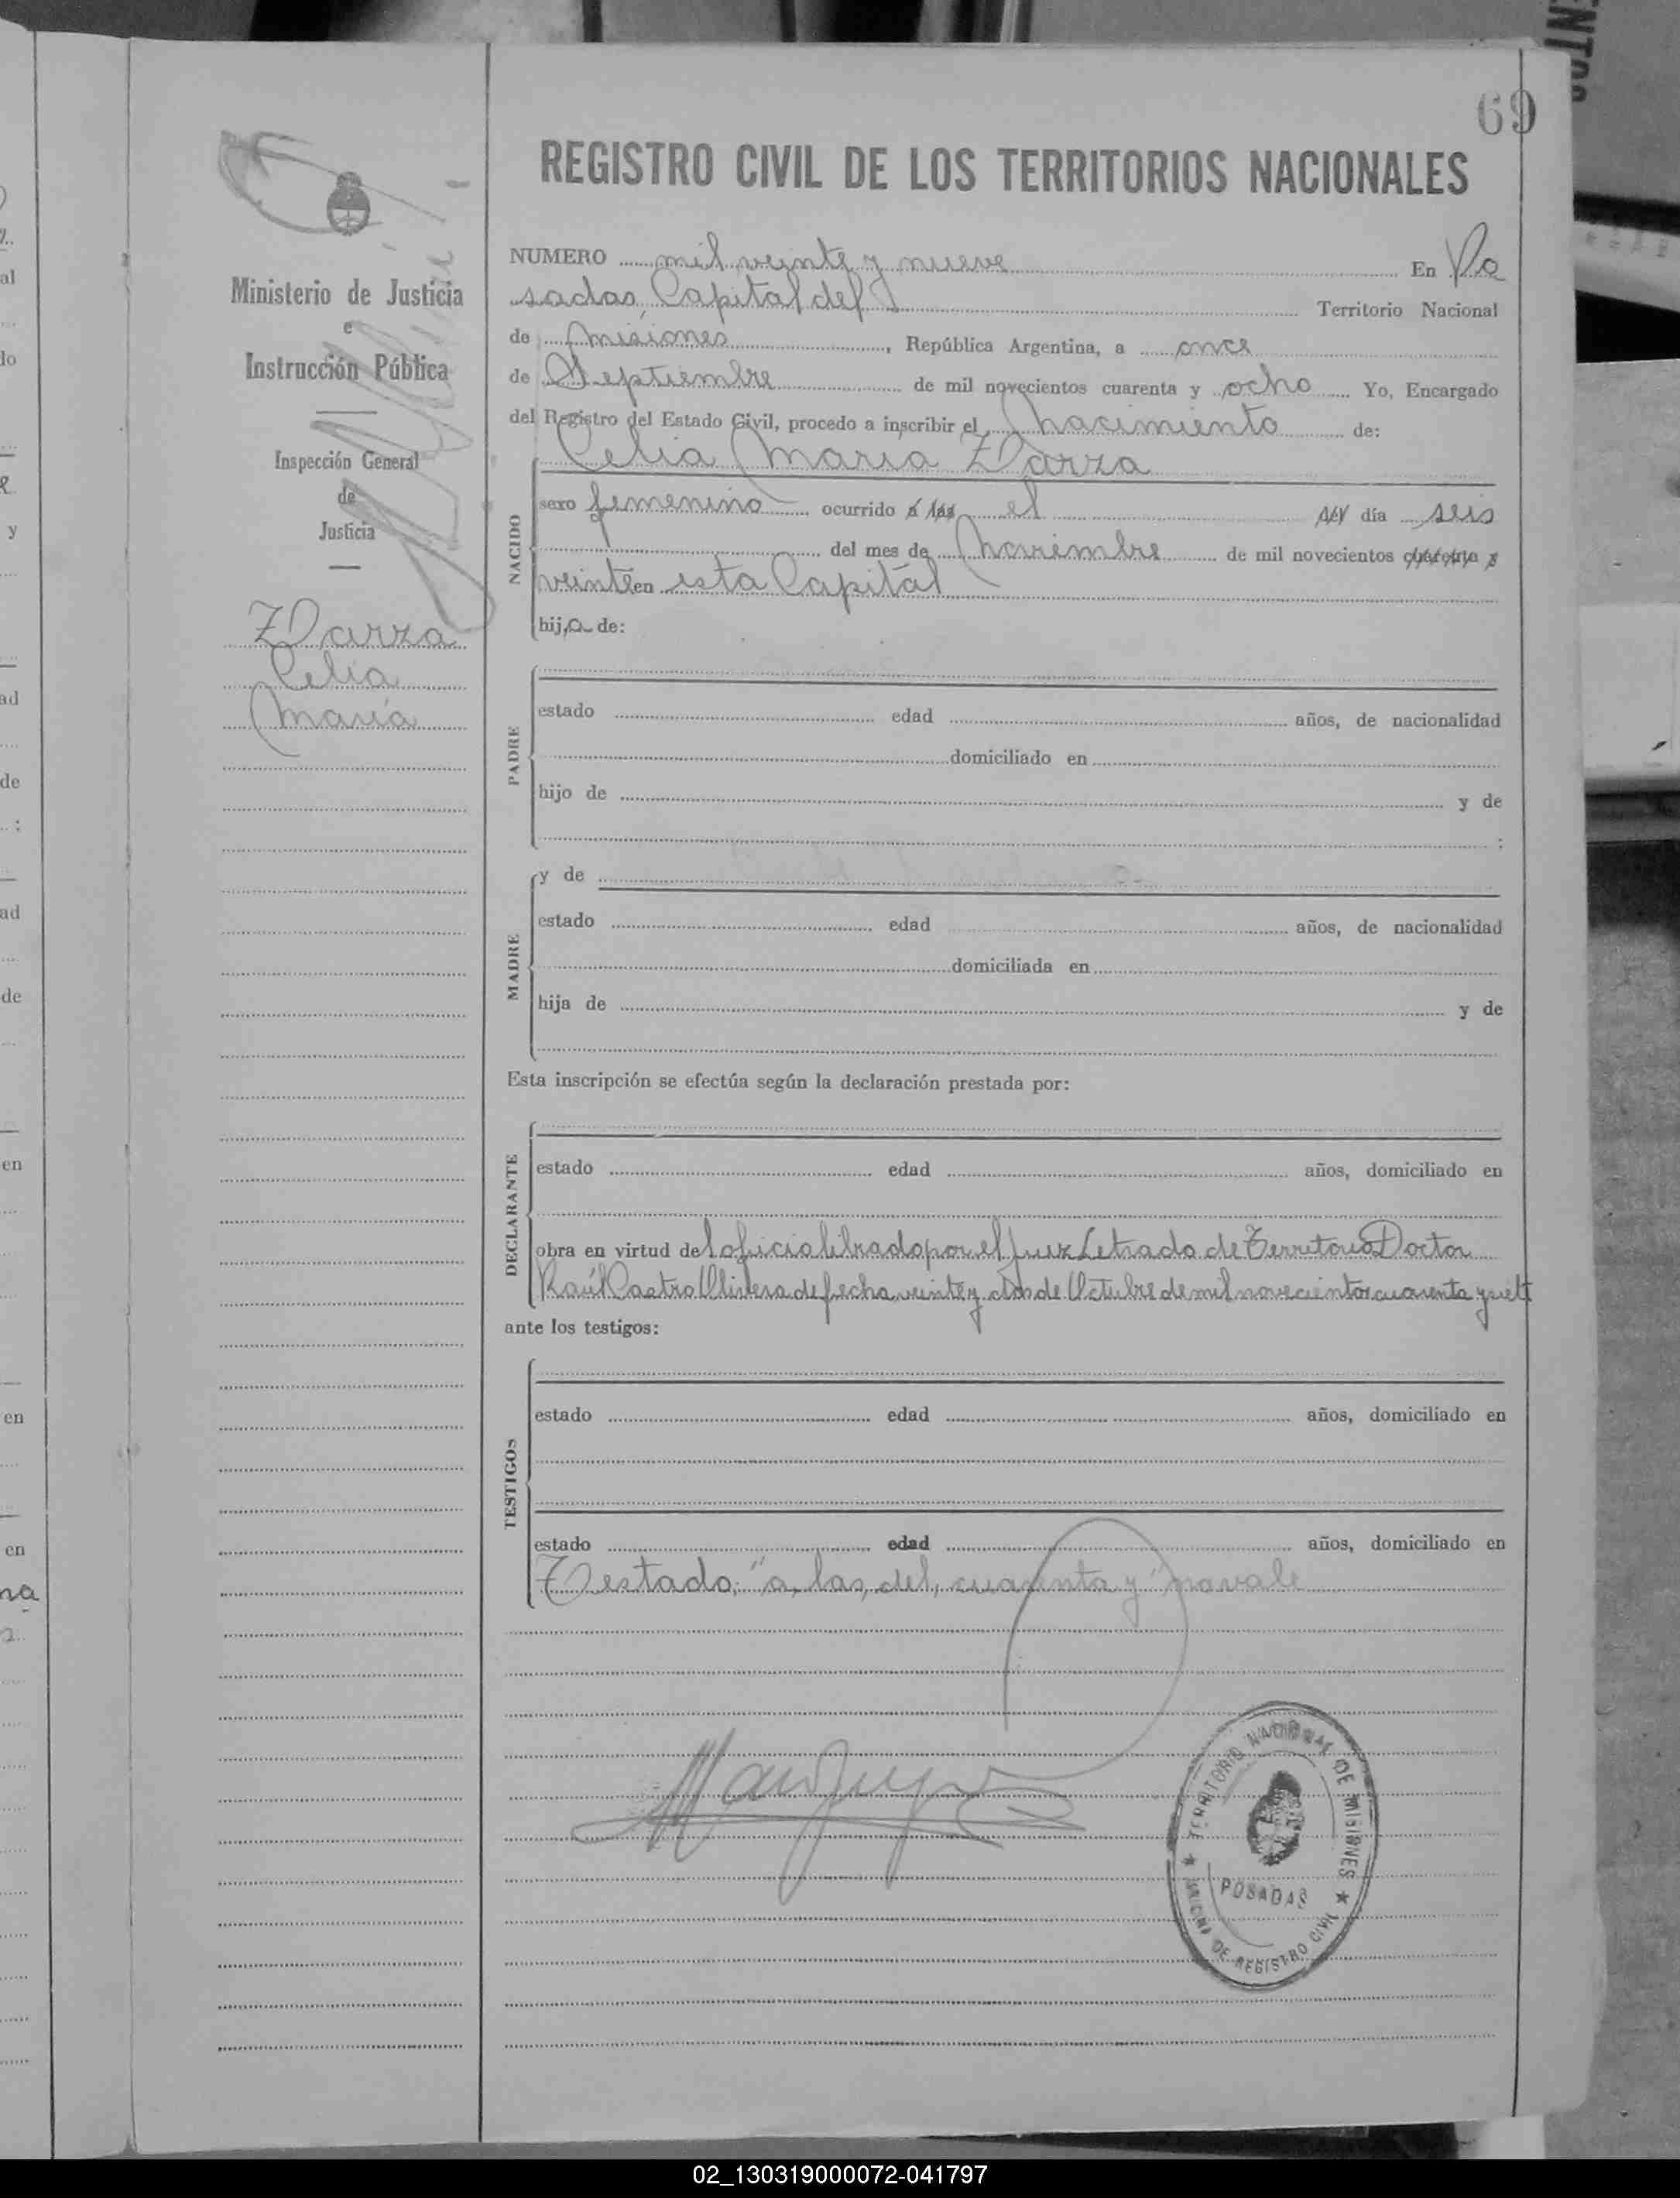 69
REGISTRO CIVIL DE LOS TERRITORIOS NACIONALES
Ministerio de Justicia
e
Instrucción Pública
Inspección General
de
Justicia
Darza
Celia
María
NUMERO mil veinte y nueve En Po
sadas, Capital del Territorio Nacional
de Misiones, República Argentina, a once
de Septiembre de mil novecientos cuarenta y ocho Yo, Encargado
del Registro del Estado Civil, procedo a inscribir el Nacimiento de:
Celia Maria Darza
NACIDO
sexo femenino ocurrido a las el del día seis
del mes de Noviembre de mil novecientos cuarenta y
veinte en esta Capital
hija de:
PADRE
estado edad años, de nacionalidad
domiciliado en
hijo de y de
;
MADRE
y de
estado edad años, de nacionalidad
domiciliada en
hija de y de
Esta inscripción se efectúa según la declaración prestada por:
DECLARANTE
estado edad años, domiciliado en
obra en virtud del oficio librado por el Juez Letrado de Territorio Doctor
Raúl Castro Olivera de fecha veinte y dos de Octubre de mil novecientos cuarenta y siete
ante los testigos:
TESTIGOS
estado edad años, domiciliado en
estado edad años, domiciliado en
Testado, "a, las, del, cuarenta y" no vale
TERRITORIO NACIONAL DE MISIONES
POSADAS
OFICINA DE REGISTRO CIVIL
02_130319000072-041797